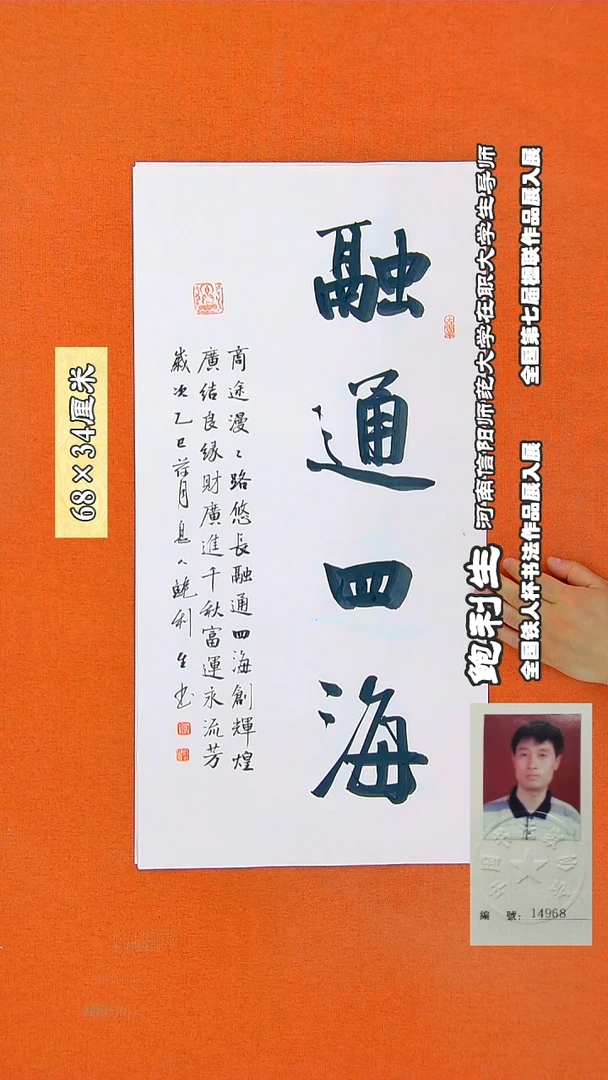 融通四海
商途漫々路悠長融通四海創輝煌
廣結良緣財廣進千秋富運永流芳
歲次乙巳荷月息人鮑利生书
68×34厘米
鲍利生 河南信阳师范大学在职大学生导师
全国铁人杯书法作品展入展 全国第七届楹联作品展入展
編 號: 14968